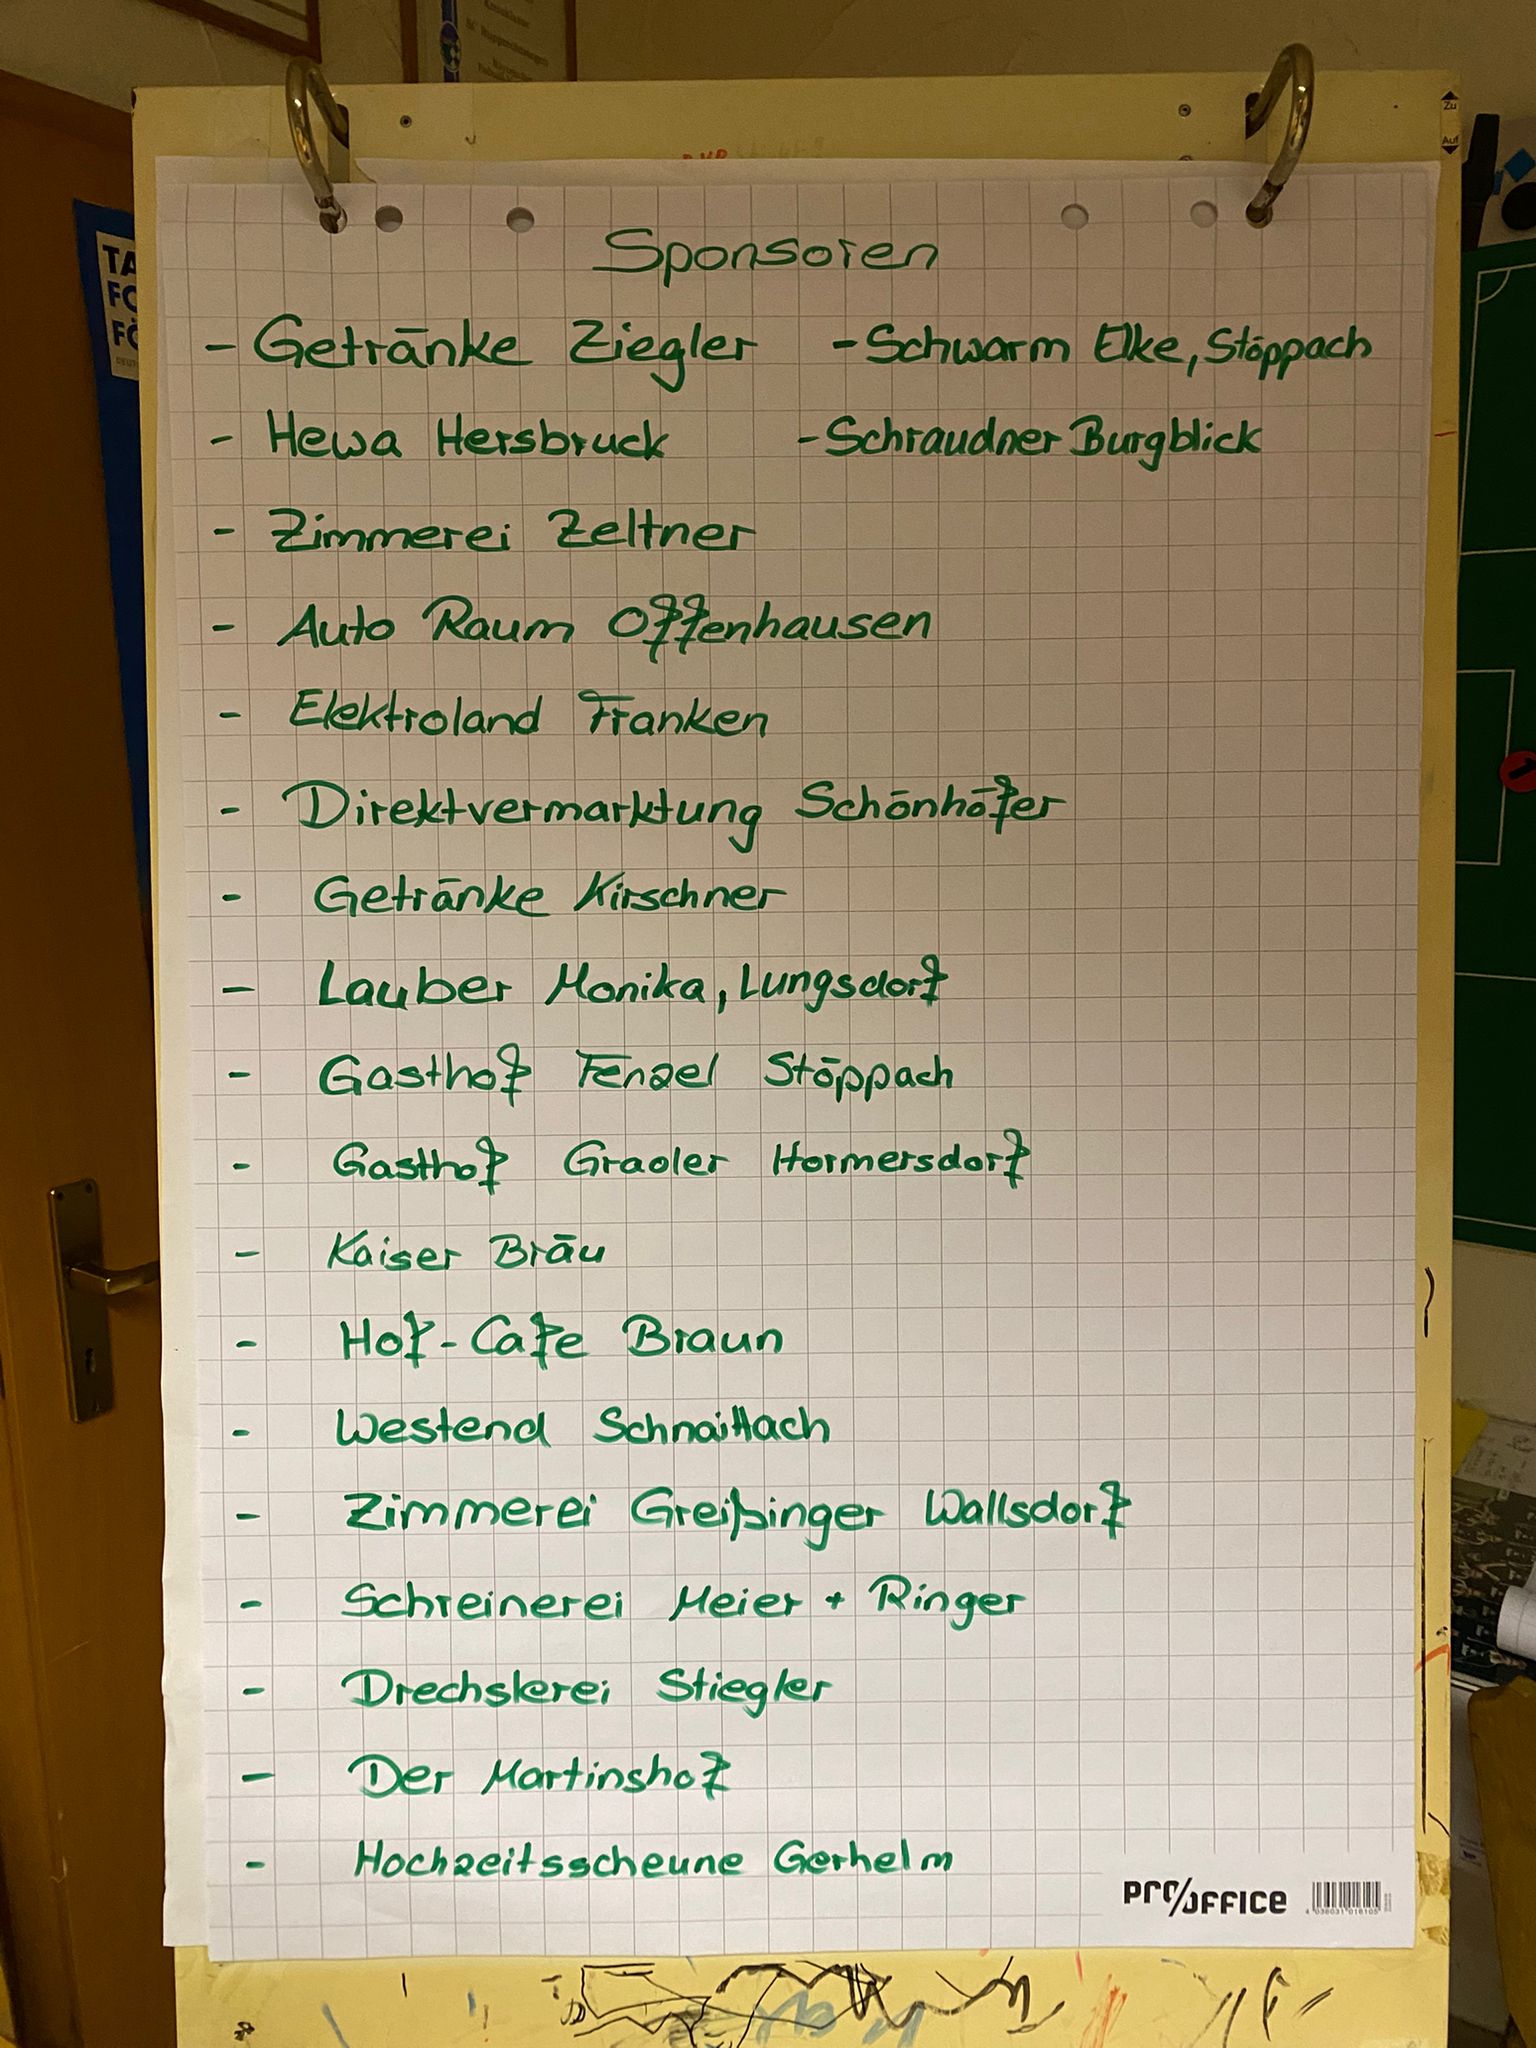 Sponsoren
- Getränke Ziegler - Schwarm Elke, Stöppach
- Hewa Hersbruck - Schraudner Burgblick
- Zimmerei Zeltner
- Auto Raum Offenhausen
- Elektroland Franken
- Direktvermarktung Schönhöfer
- Getränke Kirschner
- Lauber Monika, Lungsdorf
- Gasthof Fenzel Stöppach
- Gasthof Grader Hormersdorf
- Kaiser Bräu
- Hof-Cafe Braun
- Westend Schnaittach
- Zimmerei Greißinger Wallsdorf
- Schreinerei Meier + Ringer
- Drechslerei Stiegler
- Der Martinshof
- Hochzeitsscheune Gerhelm
PRO/OFFICE
Zu
Auf
TA
FO
FÖ
1